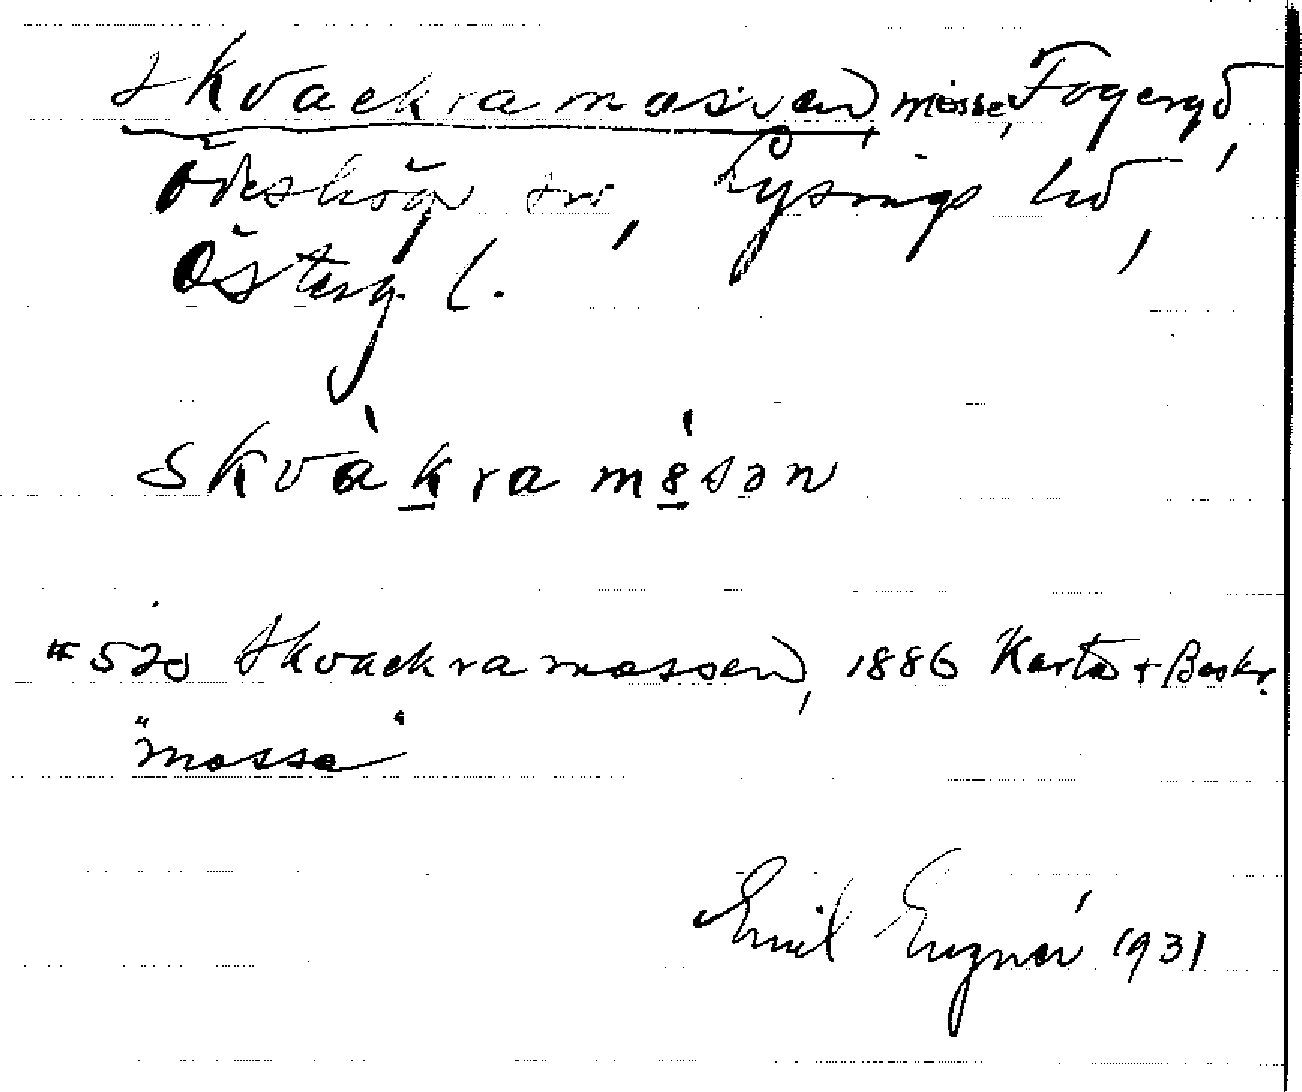 Skvackramossen, mosse, Fogeryd,
Ödeshög sn, Lysings hd,
Österg l.
skvàkra mósən
#520 Skvackramossen, 1886 Karta + Beskr.
"mosse"
Emil 1931